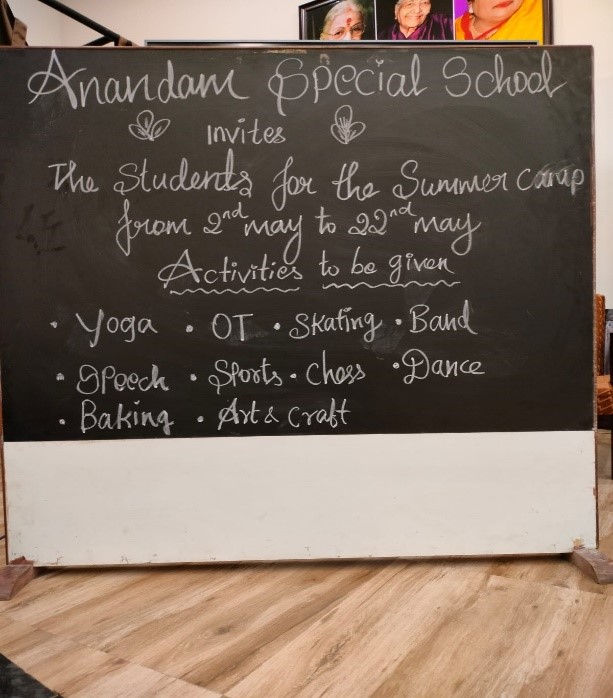 Anandam Special School
Invites
The Students for the Summer camp
from 2nd may to 22nd may
Activities to be given
• Yoga • OT • Skating • Band
• Speech • Sports • Chess • Dance
• Baking • Art & Craft